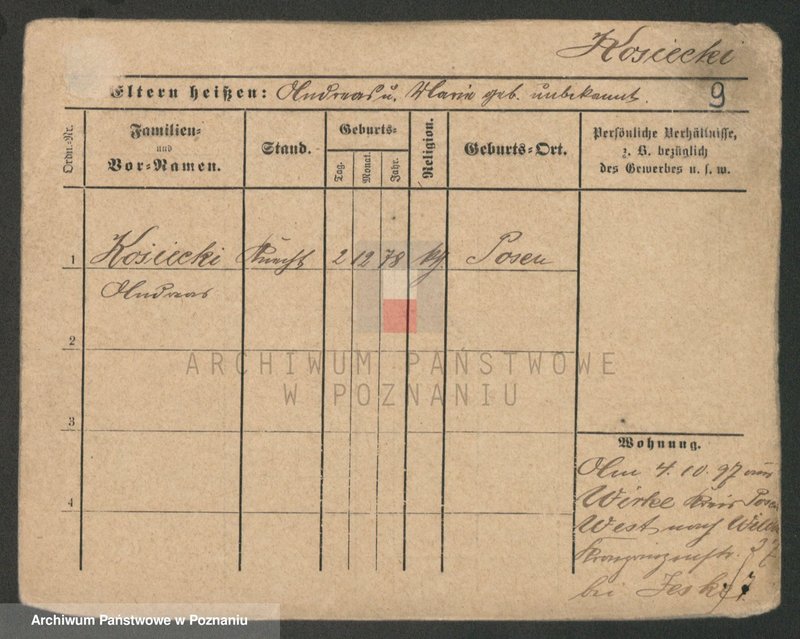 Kosiecki
Eltern heißen: Andreas u. Marie geb. unbekannt.
9
Ordn.-Nr.
Familien- und Vor-Namen.
Stand.
Geburts-
Tag.
Monat.
Jahr.
Religion.
Geburts-Ort.
Persönliche Verhältnisse,
z. B. bezüglich
des Gewerbes u. s. w.
1 Kosiecki Knecht 2 12 78 kh Posen
Andreas
2
ARCHIWUM PAŃSTWOWE
W POZNANIU
3
Wohnung.
4
Am 4.10.97 aus
Wirke Kreis Posen
West nach
bei Jeske
Archiwum Państwowe w Poznaniu